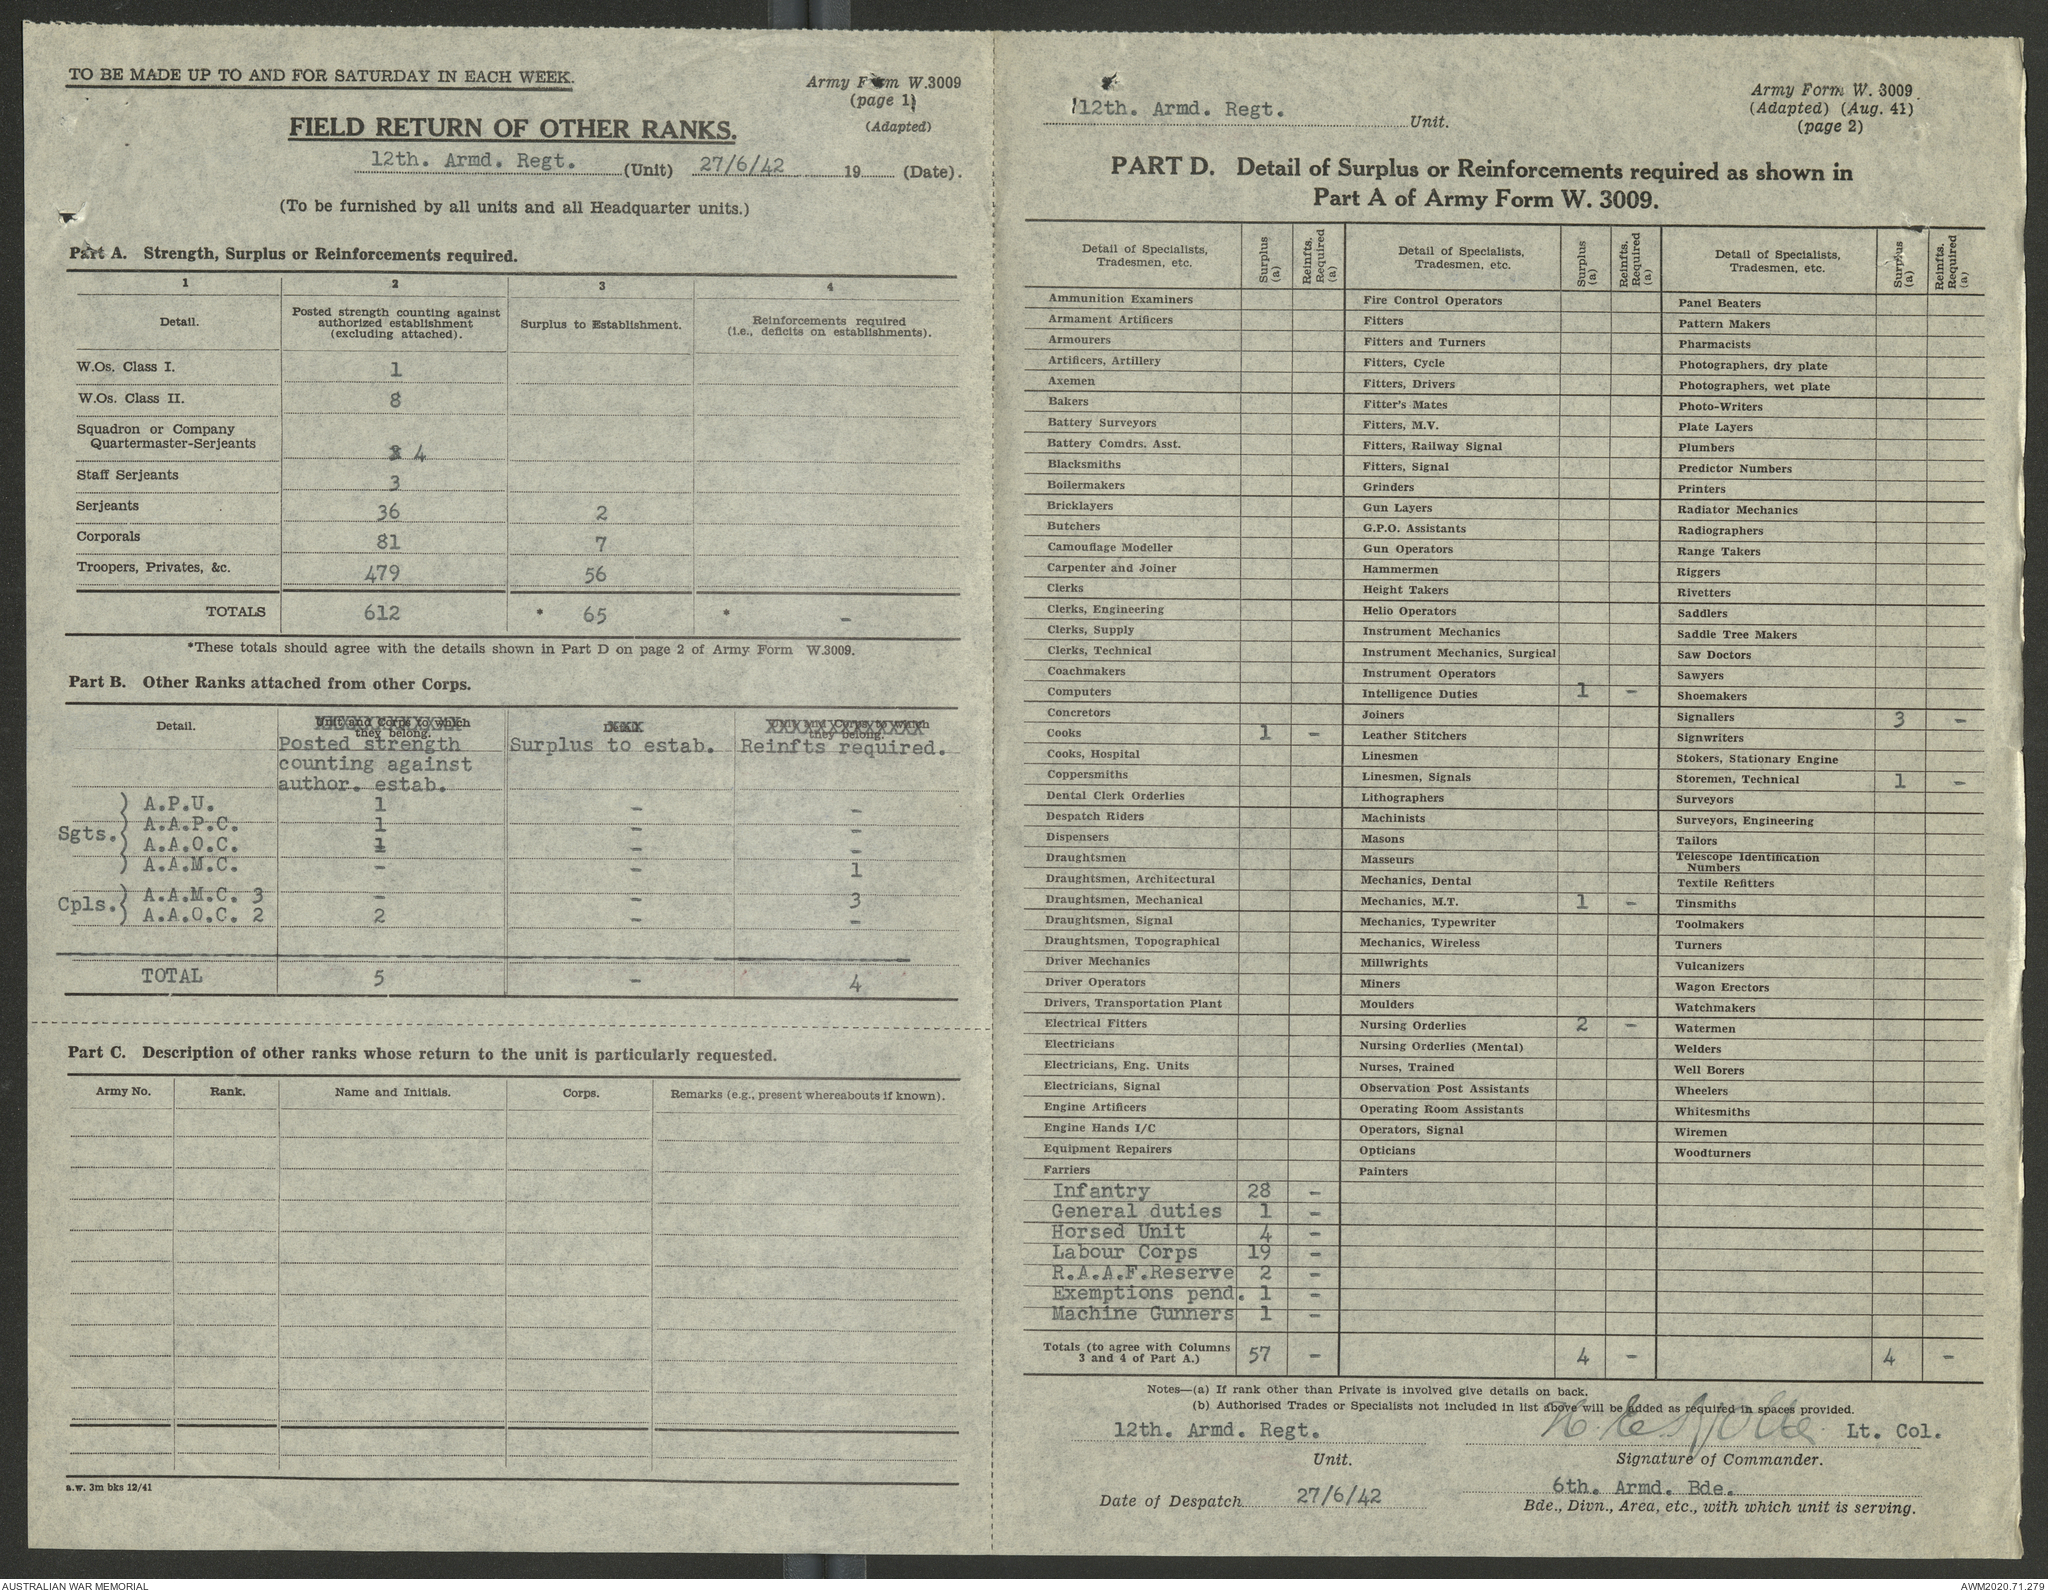 TO BE MADE UP TO AND FOR SATURDAY IN EACH WEEK.
Army Form W.3009
(page 1)
(Adapted)
FIELD RETURN OF OTHER RANKS.
12th. Armd. Regt. (Unit) 27/6/42 19 (Date).
(To be furnished by all units and all Headquarter units.)
Part A. Strength, Surplus or Reinforcements required.
1 2 3 4
Detail. Posted strength counting against authorized establishment (excluding attached). Surplus to Establishment. Reinforcements required (i.e., deficits on establishments).
W.Os. Class I. 1
W.Os. Class II. 8
Squadron or Company
Quartermaster-Serjeants 4
Staff Serjeants 3
Serjeants 36 2
Corporals 81 7
Troopers, Privates, &c. 479 56
TOTALS 612 * 65 * -
*These totals should agree with the details shown in Part D on page 2 of Army Form W.3009.
Part B. Other Ranks attached from other Corps.
Detail. Unit and Corps to which they belong. Detail Unit and Corps to which they belong.
Posted strength counting against author. estab. Surplus to estab. Reinfts required.
Sgts. ) A.P.U. 1 - -
) A.A.P.C. 1 - -
) A.A.O.C. 1 - -
) A.A.M.C. - - 1
Cpls. ) A.A.M.C. 3 - - 3
) A.A.O.C. 2 2 - -
TOTAL 5 - 4
Part C. Description of other ranks whose return to the unit is particularly requested.
Army No. Rank. Name and Initials. Corps. Remarks (e.g., present whereabouts if known).
a.w. 3m bks 12/41
12th. Armd. Regt. Unit.
Army Form W. 3009
(Adapted) (Aug. 41)
(page 2)
PART D. Detail of Surplus or Reinforcements required as shown in
Part A of Army Form W. 3009.
Detail of Specialists, Tradesmen, etc. Surplus (a) Reinfts. Required (a)
Ammunition Examiners
Armament Artificers
Armourers
Artificers, Artillery
Axemen
Bakers
Battery Surveyors
Battery Comdrs. Asst.
Blacksmiths
Boilermakers
Bricklayers
Butchers
Camouflage Modeller
Carpenter and Joiner
Clerks
Clerks, Engineering
Clerks, Supply
Clerks, Technical
Coachmakers
Computers
Concretors
Cooks 1 -
Cooks, Hospital
Coppersmiths
Dental Clerk Orderlies
Despatch Riders
Dispensers
Draughtsmen
Draughtsmen, Architectural
Draughtsmen, Mechanical
Draughtsmen, Signal
Draughtsmen, Topographical
Driver Mechanics
Driver Operators
Drivers, Transportation Plant
Electrical Fitters
Electricians
Electricians, Eng. Units
Electricians, Signal
Engine Artificers
Engine Hands I/C
Equipment Repairers
Farriers
Infantry 28 -
General duties 1 -
Horsed Unit 4 -
Labour Corps 19 -
R.A.A.F.Reserve 2 -
Exemptions pend. 1 -
Machine Gunners 1 -
Detail of Specialists, Tradesmen, etc. Surplus (a) Reinfts. Required (a)
Fire Control Operators
Fitters
Fitters and Turners
Fitters, Cycle
Fitters, Drivers
Fitter's Mates
Fitters, M.V.
Fitters, Railway Signal
Fitters, Signal
Grinders
Gun Layers
G.P.O. Assistants
Gun Operators
Hammermen
Height Takers
Helio Operators
Instrument Mechanics
Instrument Mechanics, Surgical
Instrument Operators
Intelligence Duties 1 -
Joiners
Leather Stitchers
Linesmen
Linesmen, Signals
Lithographers
Machinists
Masons
Masseurs
Mechanics, Dental
Mechanics, M.T. 1 -
Mechanics, Typewriter
Mechanics, Wireless
Millwrights
Miners
Moulders
Nursing Orderlies 2 -
Nursing Orderlies (Mental)
Nurses, Trained
Observation Post Assistants
Operating Room Assistants
Operators, Signal
Opticians
Painters
Detail of Specialists, Tradesmen, etc. Surplus (a) Reinfts. Required (a)
Panel Beaters
Pattern Makers
Pharmacists
Photographers, dry plate
Photographers, wet plate
Photo-Writers
Plate Layers
Plumbers
Predictor Numbers
Printers
Radiator Mechanics
Radiographers
Range Takers
Riggers
Rivetters
Saddlers
Saddle Tree Makers
Saw Doctors
Sawyers
Shoemakers
Signallers 3 -
Signwriters
Stokers, Stationary Engine
Storemen, Technical 1 -
Surveyors
Surveyors, Engineering
Tailors
Telescope Identification
Numbers
Textile Refitters
Tinsmiths
Toolmakers
Turners
Vulcanizers
Wagon Erectors
Watchmakers
Watermen
Welders
Well Borers
Wheelers
Whitesmiths
Wiremen
Woodturners
Totals (to agree with Columns 3 and 4 of Part A.) 57 - 4 - 4 -
Notes—(a) If rank other than Private is involved give details on back.
(b) Authorised Trades or Specialists not included in list above will be added as required in spaces provided.
12th. Armd. Regt. Lt. Col.
Unit. Signature of Commander.
6th. Armd. Bde.
Date of Despatch 27/6/42 Bde., Divn., Area, etc., with which unit is serving.
AUSTRALIAN WAR MEMORIAL
AWM2020.71.279